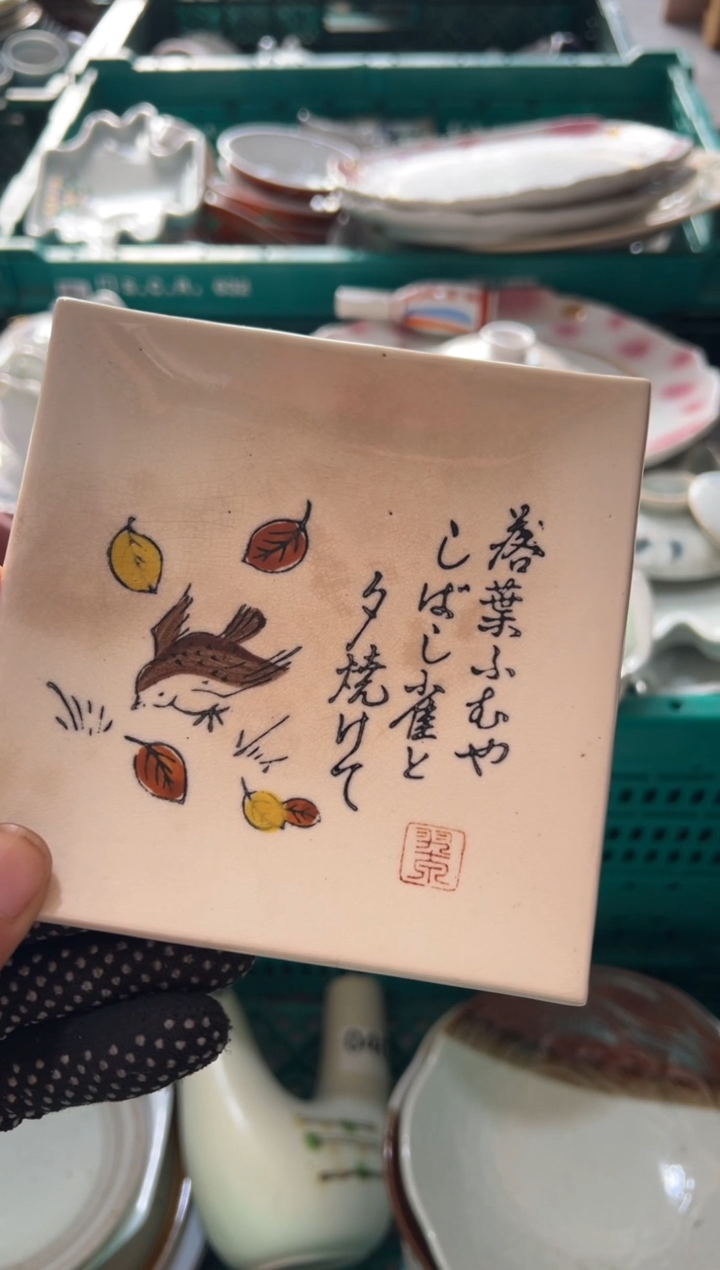 落葉ふむや
しばし雀と
夕焼けて